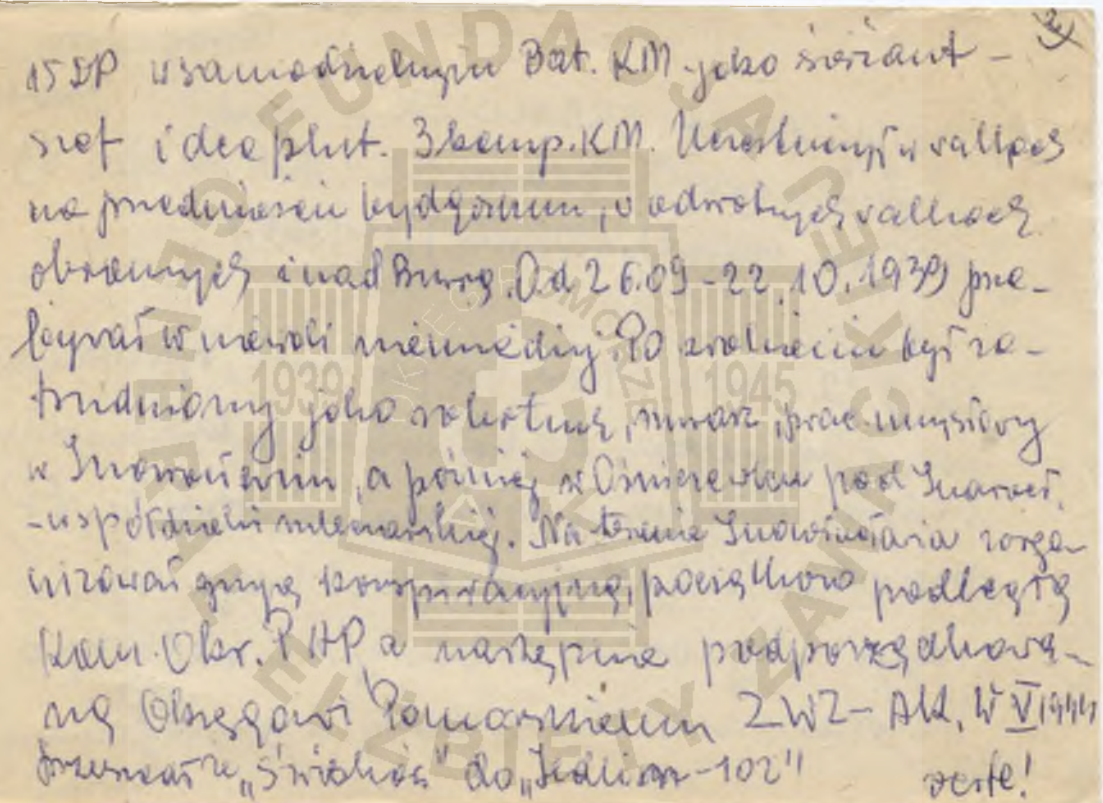 2)
15 DP w samodzielnym Bat. KM jako sierżant -
szef i dca plut. 3 komp. KM. Uczestniczył w walkach
na przedmieściu bydgoskim, w odwrotnych walkach
obronnych i nad Bzurą. Od 26.09 - 22.10.1939 prze-
bywał w niewoli niemieckiej. Po zwolnieniu był za-
trudniony jako robotnik, murarz, prac. umysłowy
w Inowrocławiu, a później w pod Inowroc.
- w spółdzielni mleczarskiej. Na terenie Inowrocławia zorga-
nizował grupę konspiracyjną, początkowo podległą
Kom. Okr. PAP a następnie podporządkowa-
ną Okręgowi Pomorskiemu ZWZ - AK. W V 1944
ze do "-102"
verte!
FUNDACJA GENERAŁ ELŻBIETY ZAWACKIEJ
OKRĘG POMORZE
1939 1945
AK